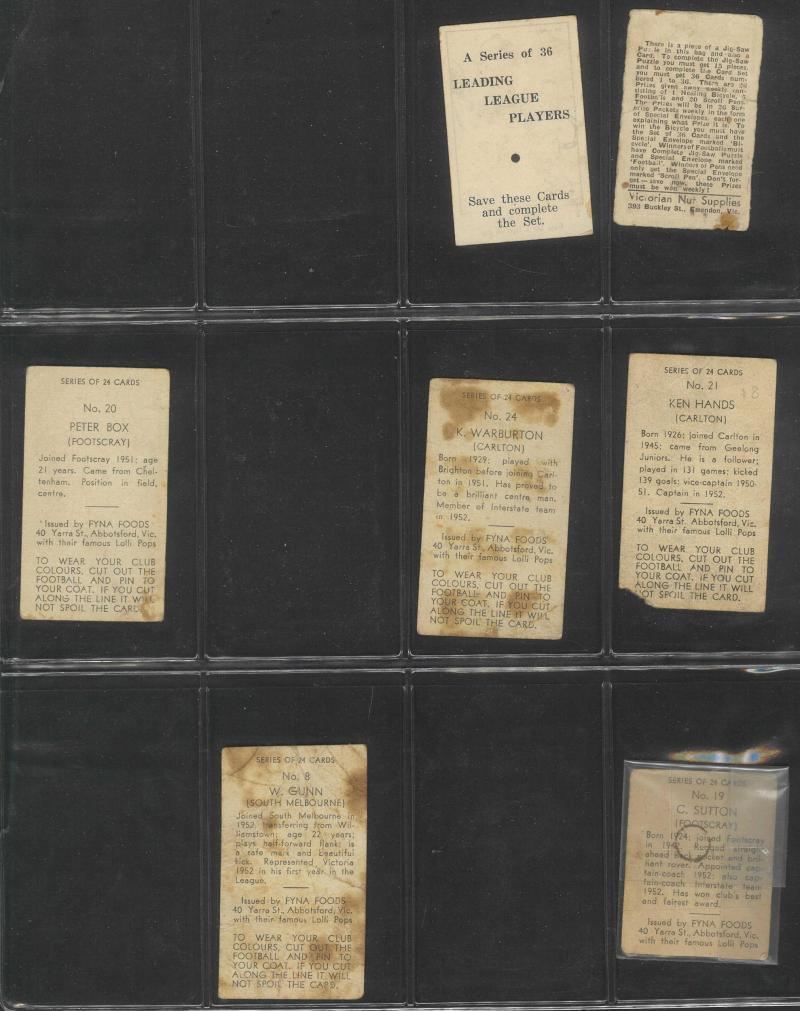 A Series of 36
LEADING
LEAGUE
PLAYERS
Save these Cards
and complete
the Set.
There is a piece of a Jig-Saw
Puzzle in this bag and also a
Card. To complete the Jig-Saw
Puzzle you must get 15 pieces,
and to complete the Card Set
you must get 36 Cards num-
bered 1 to 36. There are 26
Prizes given away weekly con-
sisting of 1 Healing Bicycle, 5
Footballs and 20 Scroll Pens.
The Prizes will be in 26 Sur-
prise Packets weekly in the form
of Special Envelopes, each one
explaining what Prize it is. To
win the Bicycle you must have
the Set of 36 Cards and the
Special Envelope marked 'Bi-
cycle'. Winners of Footballs must
have Complete Jig-Saw Puzzle
and Special Envelope marked
'Football'. Winners of Pens need
only get the Special Envelope
marked 'Scroll Pen'. Don't for-
get—save now, these Prizes
must be won weekly!
Victorian Nut Supplies
393 Buckley St., Essendon, Vic.
SERIES OF 24 CARDS
No. 20
PETER BOX
(FOOTSCRAY)
Joined Footscray 1951; age
21 years. Came from Chel-
tenham. Position in field,
centre.
Issued by FYNA FOODS
40 Yarra St., Abbotsford, Vic.
with their famous Lolli Pops
TO WEAR YOUR CLUB
COLOURS, CUT OUT THE
FOOTBALL AND PIN TO
YOUR COAT. IF YOU CUT
ALONG THE LINE IT WILL
NOT SPOIL THE CARD.
SERIES OF 24 CARDS
No. 24
K. WARBURTON
(CARLTON)
Born 1929; played with
Brighton before joining Carl-
ton in 1951. Has proved to
be a brilliant centre man.
Member of Interstate team
in 1952.
Issued by FYNA FOODS
40 Yarra St., Abbotsford, Vic.
with their famous Lolli Pops
TO WEAR YOUR CLUB
COLOURS, CUT OUT THE
FOOTBALL AND PIN TO
YOUR COAT. IF YOU CUT
ALONG THE LINE IT WILL
NOT SPOIL THE CARD.
SERIES OF 24 CARDS
No. 21
KEN HANDS
(CARLTON)
Born 1926; joined Carlton in
1945; came from Geelong
Juniors. He is a follower;
played in 131 games; kicked
139 goals; vice-captain 1950-
51. Captain in 1952.
Issued by FYNA FOODS
40 Yarra St., Abbotsford, Vic.
with their famous Lolli Pops
TO WEAR YOUR CLUB
COLOURS, CUT OUT THE
FOOTBALL AND PIN TO
YOUR COAT. IF YOU CUT
ALONG THE LINE IT WILL
NOT SPOIL THE CARD.
SERIES OF 24 CARDS
No. 8
W. GUNN
(SOUTH MELBOURNE)
Joined South Melbourne in
1952, transferring from Wil-
liamstown; age 22 years;
plays half-forward flank; is
a safe mark and beautiful
kick. Represented Victoria
1952 in his first year in the
League.
Issued by FYNA FOODS
40 Yarra St., Abbotsford, Vic.
with their famous Lolli Pops
TO WEAR YOUR CLUB
COLOURS, CUT OUT THE
FOOTBALL AND PIN TO
YOUR COAT. IF YOU CUT
ALONG THE LINE IT WILL
NOT SPOIL THE CARD.
SERIES OF 24 CARDS
No. 19
C. SUTTON
(FOOTSCRAY)
Born 1924; joined Footscray
in Rugged straight
ahead pocket and bril-
liant rover. Appointed cap-
tain-coach 1952; also cap-
tain-coach Interstate team
1952. Has won club's best
and fairest award.
Issued by FYNA FOODS
40 Yarra St., Abbotsford, Vic.
with their famous Lolli Pops